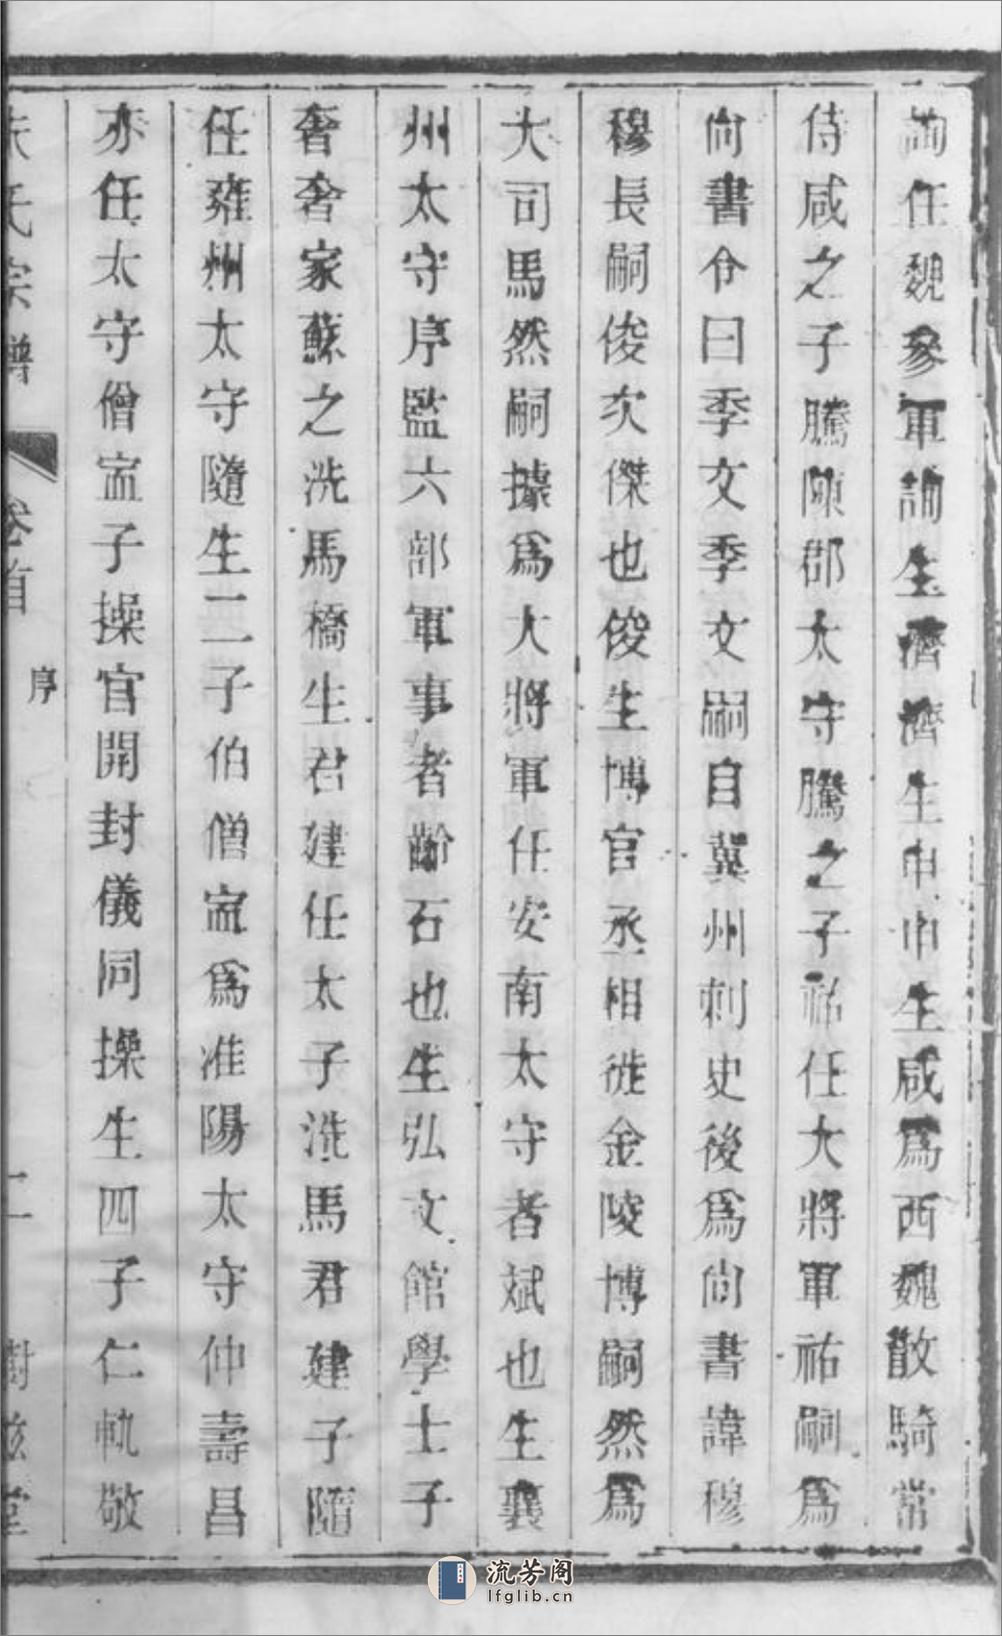 任魏參軍誦生濟濟生巾巾生咸為西魏散騎常
侍咸之子騰陳郡太守騰之子祐任大將軍祐嗣為
尚書令曰季文季文嗣自冀州刺史後為尚書諱穆
穆長嗣俊次傑也俊生博官丞相徙金陵博嗣然為
大司馬然嗣據為大將軍任安南太守者斌也生襄
州太守序監六部軍事者齡石也生弘文館學士子
奢奢家蘇之洗馬橋生君建任太子洗馬君建子隨
任雍州太守隨生二子伯僧寍為准陽太守仲壽昌
亦任太守僧寍子操官開封儀同操生四子仁軌敬
氏宗譜 卷首 序 二 樹 堂
流芳阁
lfglib.cn